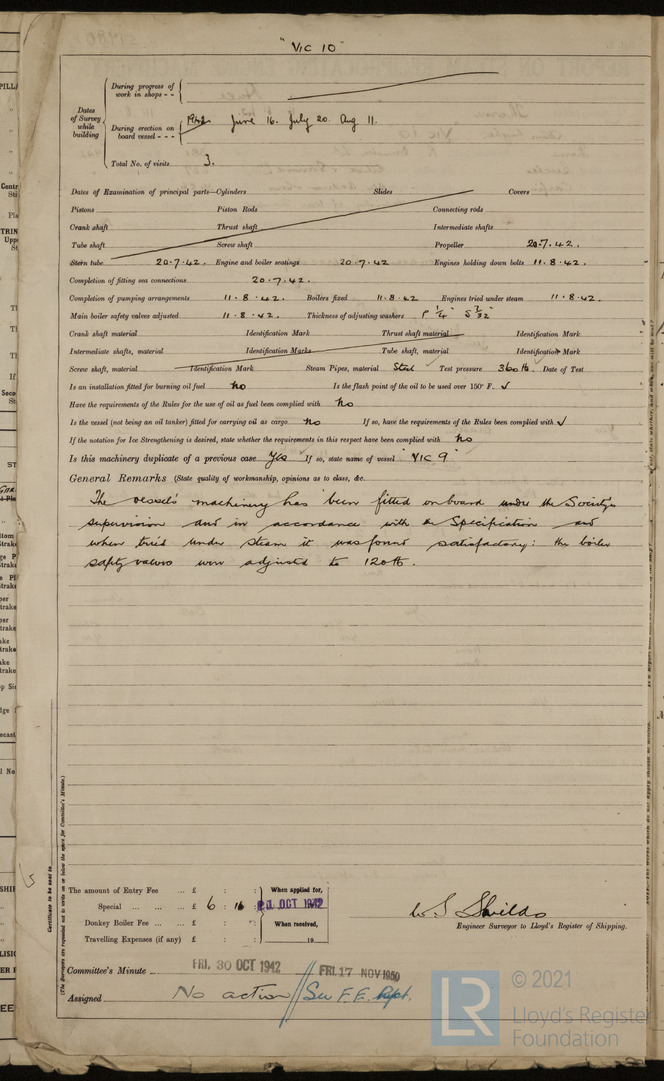 "VIC 10"
Dates of Survey while building
During progress of work in shops - -
During erection on board vessel - - -
1942. June 16. July 20. Aug 11.
Total No. of visits 3.
Dates of Examination of principal parts—Cylinders Slides Covers
Pistons Piston Rods Connecting rods
Crank shaft Thrust shaft Intermediate shafts
Tube shaft Screw shaft Propeller 20.7.42.
Stern tube 20.7.42. Engine and boiler seatings 20.7.42 Engines holding down bolts 11.8.42.
Completion of fitting sea connections 20.7.42.
Completion of pumping arrangements 11.8.42. Boilers fixed 11.8.42 Engines tried under steam 11.8.42.
Main boiler safety valves adjusted 11.8.42. Thickness of adjusting washers P 1/4" S 7/32"
Crank shaft material Identification Mark Thrust shaft material Identification Mark
Intermediate shafts, material Identification Marks Tube shaft, material Identification Mark
Screw shaft, material Identification Mark Steam Pipes, material Steel Test pressure 360 lb. Date of Test
Is an installation fitted for burning oil fuel No Is the flash point of the oil to be used over 150° F. ✓
Have the requirements of the Rules for the use of oil as fuel been complied with No
Is the vessel (not being an oil tanker) fitted for carrying oil as cargo No If so, have the requirements of the Rules been complied with ✓
If the notation for Ice Strengthening is desired, state whether the requirements in this respect have been complied with No
Is this machinery duplicate of a previous case Yes If so, state name of vessel "VIC 9"
General Remarks (State quality of workmanship, opinions as to class, &c.
The vessel's machinery has been fitted onboard under the Society's
supervision and in accordance with the Specification and
when tried under steam it was found satisfactory: the boiler
safety valves were adjusted to 120 lb.
Certificate to be sent to
(The Surveyors are requested not to write on or below the space for Committee's Minute.)
The amount of Entry Fee ... £ : : When applied for,
Special ... ... £ 6 : 16 : 21 OCT 1942
Donkey Boiler Fee ... £ : : When received,
Travelling Expenses (if any) £ : : 19
W S Shields
Engineer Surveyor to Lloyd's Register of Shipping.
Committee's Minute FRI. 30 OCT 1942 FRI. 17 NOV 1950
Assigned No action // See F.E. Rpt.
© 2021
LR
Lloyd's Register
Foundation